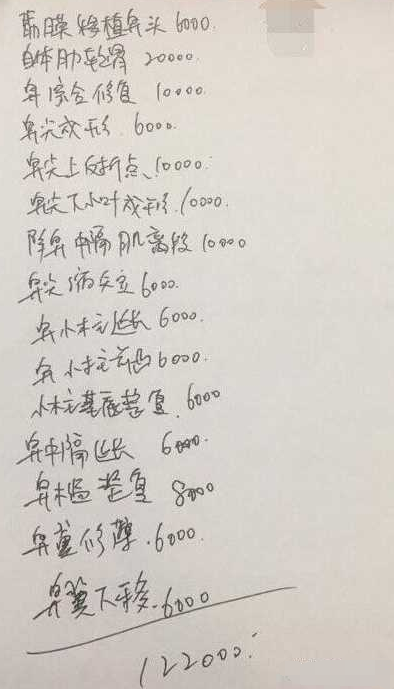 筋膜移植鼻头 6000.
自体肋软骨 20000.
鼻综合修复 10000.
鼻尖成形 6000.
鼻尖上反折点、10000.
鼻尖下小叶成形.10000.
降鼻中隔肌离段 10000
鼻尖缩窄 6000.
鼻小柱延长 6000.
鼻小柱前凸 6000.
小柱基底整复.6000
鼻中隔延长 6000.
鼻槛整复 8000
鼻翼修薄.6000.
鼻翼下移.6000
122000.